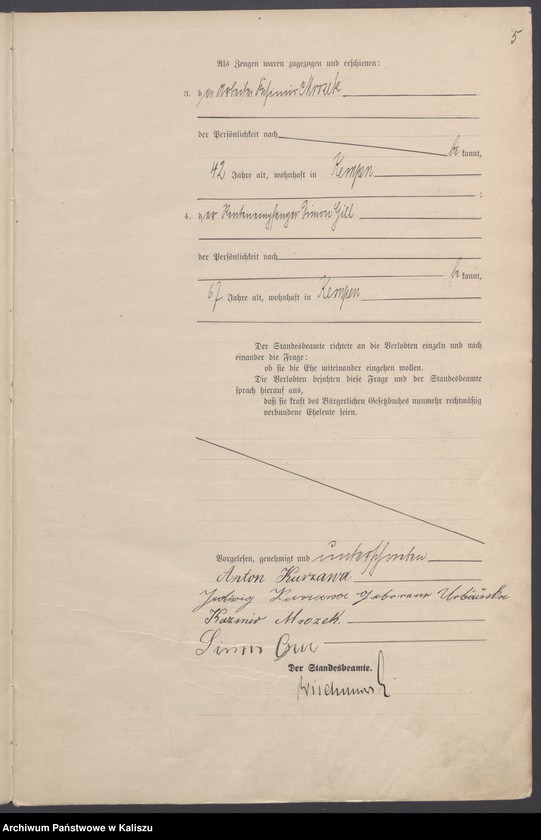 5
Als Zeugen waren zugezogen und erschienen:
3. der Arbeiter Kasimir Mrozek
der Persönlichkeit nach
be kannt,
42 Jahre alt, wohnhaft in Kempen
;
4. der Rentenempfänger Simon Gill
der Persönlichkeit nach
be kannt,
67 Jahre alt, wohnhaft in Kempen
Der Standesbeamte richtete an die Verlobten einzeln und nach
einander die Frage:
ob sie die Ehe miteinander eingehen wollen.
Die Verlobten bejahten diese Frage und der Standesbeamte
sprach hierauf aus,
daß sie kraft des Bürgerlichen Gesetzbuches nunmehr rechtmäßig
verbundene Eheleute seien.
Vorgelesen, genehmigt und unterschrieben
Anton Kurzawa
Jadwig Kurzawa geborene
Kazmir Mrozek.
Simon
Der Standesbeamte.
Archiwum Państwowe w Kaliszu